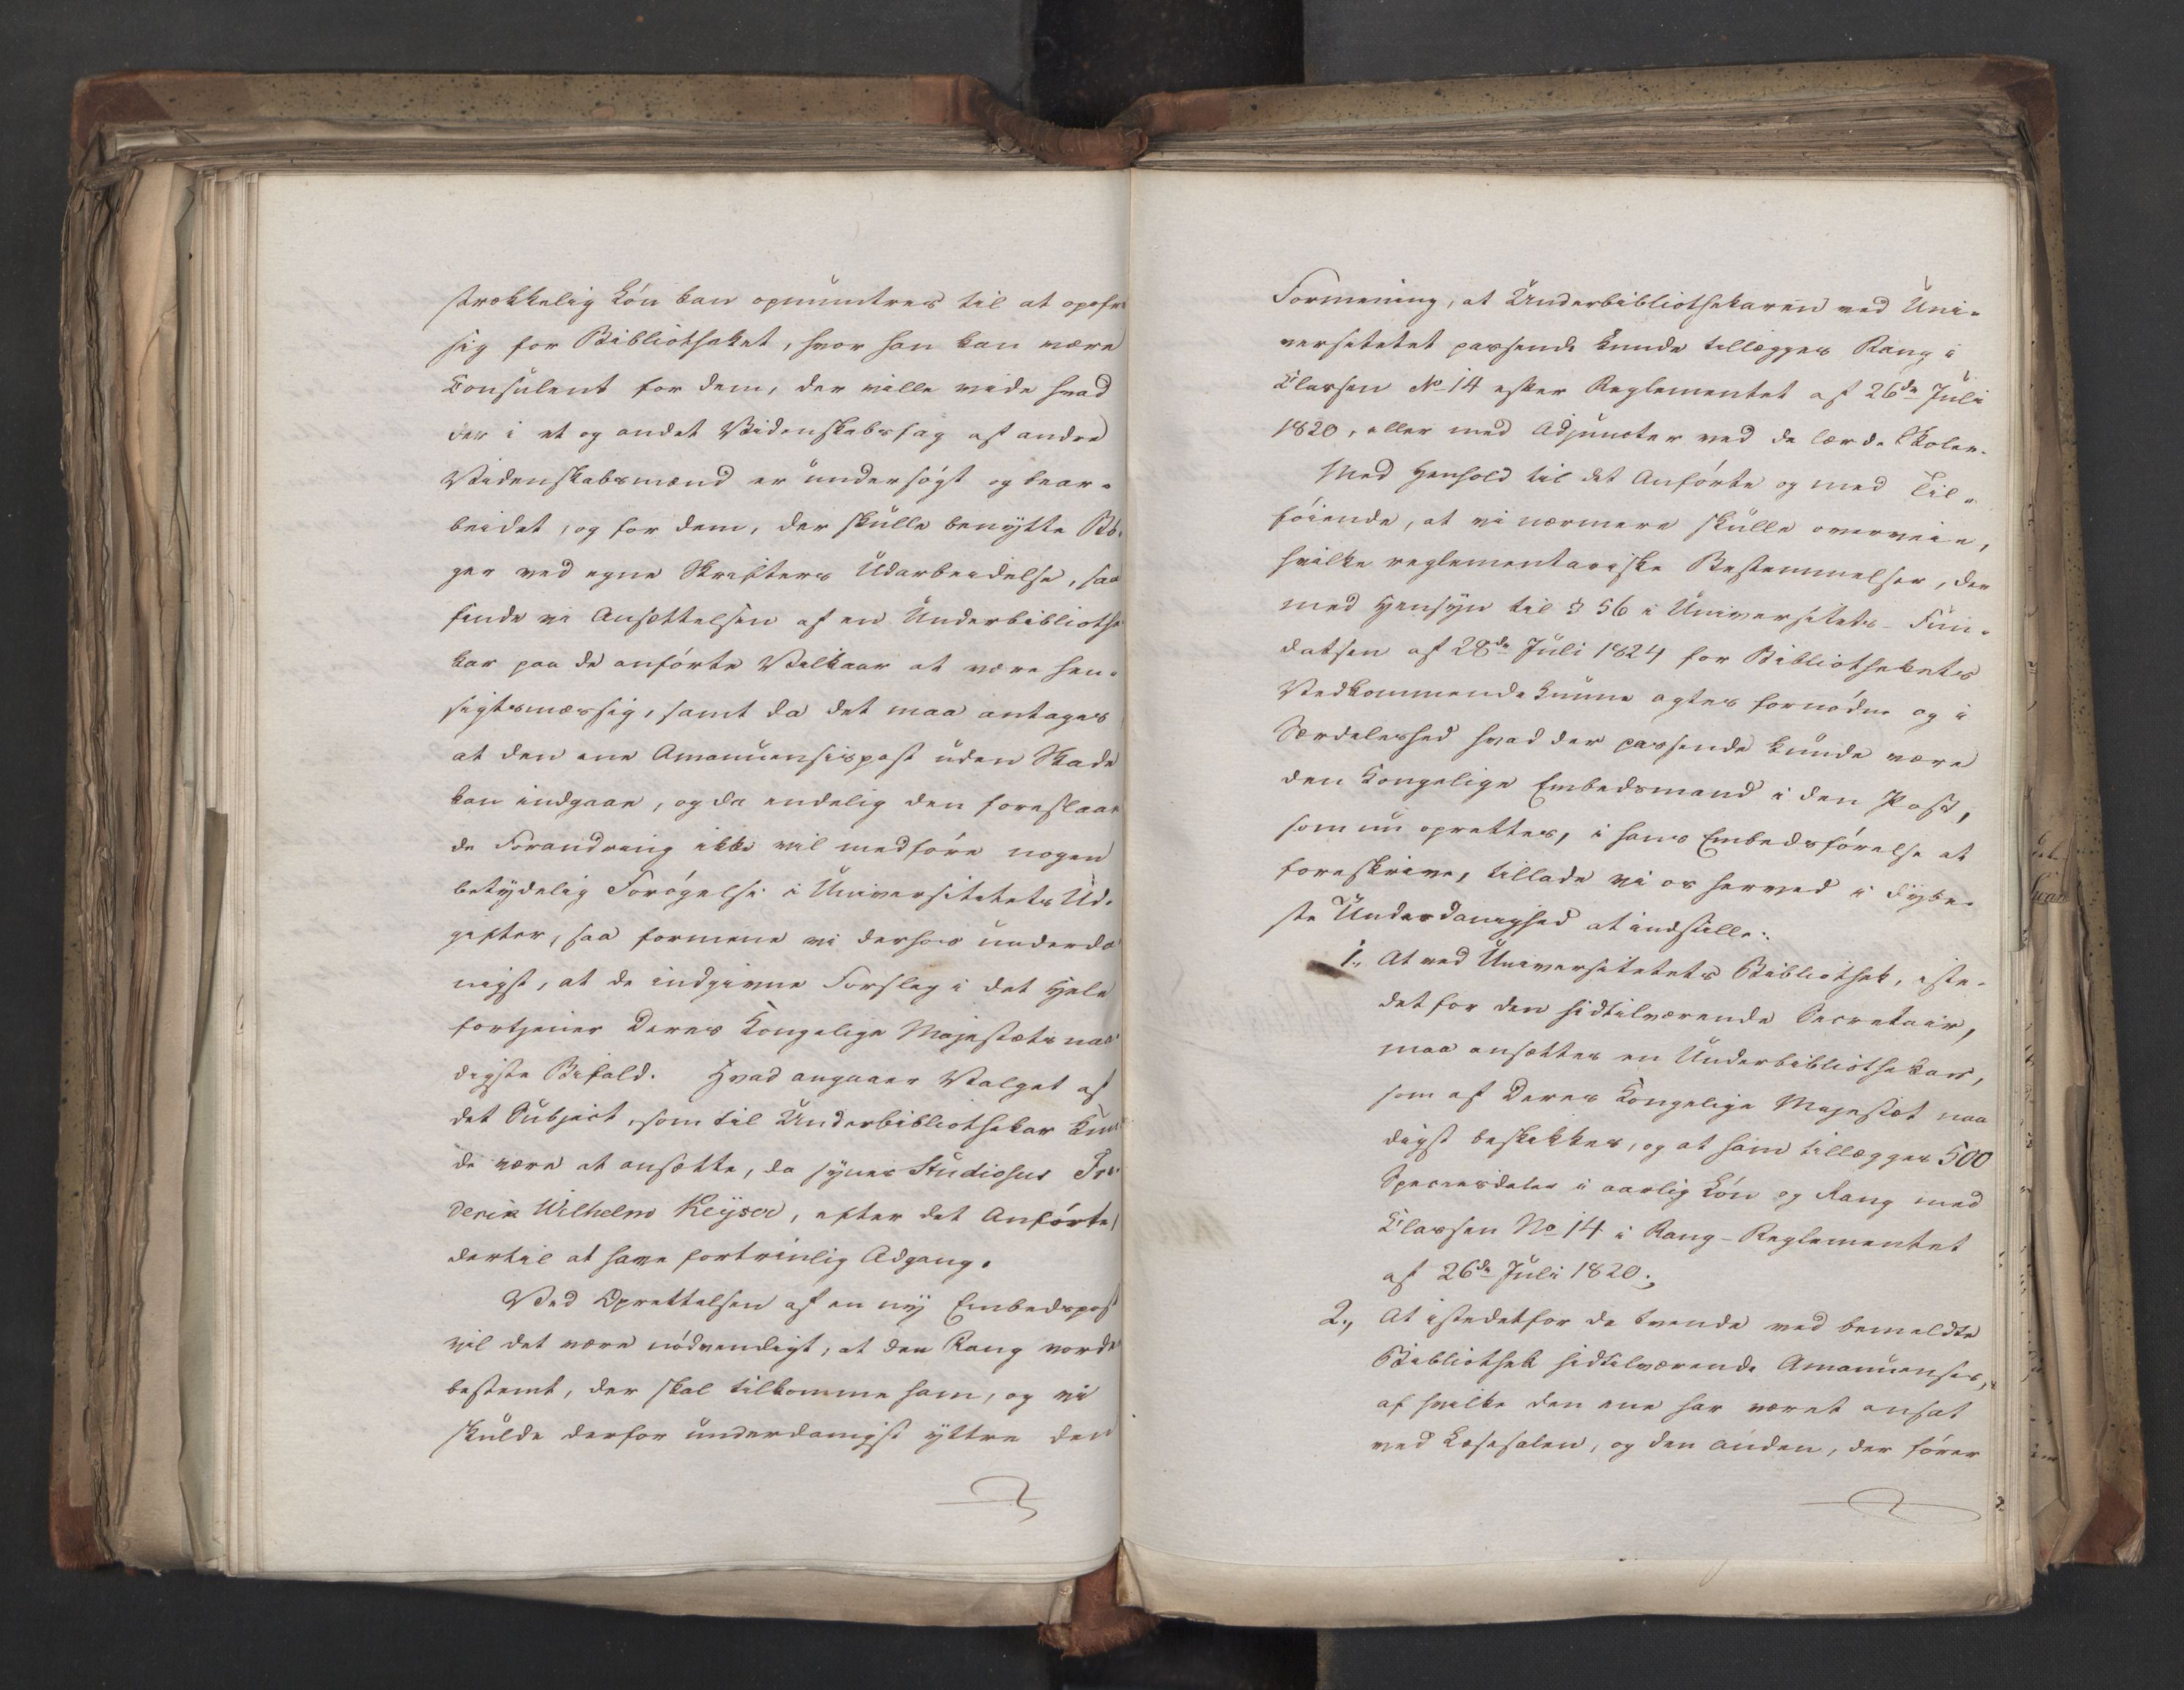 strækkelig Lön kan opmuntres til at opofre
sig for Bibliotheket, hvor han kan være
Consulent for dem, der ville vide hvad
der i et og andet Videnskabsfag af andre
Videnskabsmænd er undersögt og bear-
beidet, og for dem, der skulle benytte Bö-
ger ved egne Skrifters Udarbeidelse, saa
finde vi Ansættelsen af en Underbibliothe
kar paa de anförte Vilkaar at være hen-
sigtsmæssig, samt da det maa antages
at den ene Amanuensispost uden Skade
kan indgaae, og da endelig den foreslaae
de Forandring ikke vil medföre nogen
betydelig Forögelse i Universitetets Ud-
gifter, saa formene vi derhos underda
nigst, at de indgivne Forslag i det Hele
fortjener Deres Kongelige Majestæts naa
digste Bifald. Hvad angaaer Valget af
det Subject, som til Underbibliothekar kun
de være at ansætte, da synes Studiosus Fre
deric Wilhelm Keyser, efter det Anförte
dertil at have fortrinlig Adgang.
Ved Oprettelsen af en ny Embedspost
vil det være nödvendigt, at den Rang vorde
bestemt, der skal tilkomme ham, og vi
skulde derfor underdanigst yttre den
Formening, at Underbibliothekaren ved Uni-
versitetet passende kunde tillægges Rang i
Classen No 14 efter Reglementet af 26de Juli
1820, eller med Adjuncter ved de lærde Skoler.
Med Henhold til det Anförte og med Til-
föiende, at vi nærmere skulle overveie,
hvilke reglementariske Bestemmelser, der
med Hensyn til § 56 i Universitets-Fun-
datsen af 28de Juli 1824 for Bibliothekets
Vedkommende kunne agtes fornödne og i
Særdeleshed hvad der passende kunde være
den Kongelige Embedsmand i den Post,
som nu oprettes, i hans Embedsförelse at
foreskrive, tillade vi os herved i dybe-
ste Underdanighed at indstille:
1., At ved Universitetets Bibliothek, iste-
detfor den hidtilværende Secretair,
maa ansættes en Underbibliothekar,
som af Deres Kongelige Majestæt naa
digst beskikkes, og at ham tillægges 500
Speciesdaler i aarlig Lön og Rang med
Classen No 14 i Rang-Reglementet
af 26de Juli 1820;
2., At istedetfor de tvende ved bemeldte
Bibliothek hidtilværende Amanuenser,
af hvilke den ene har været ansat
ved Læsesalen, og den anden, der förer